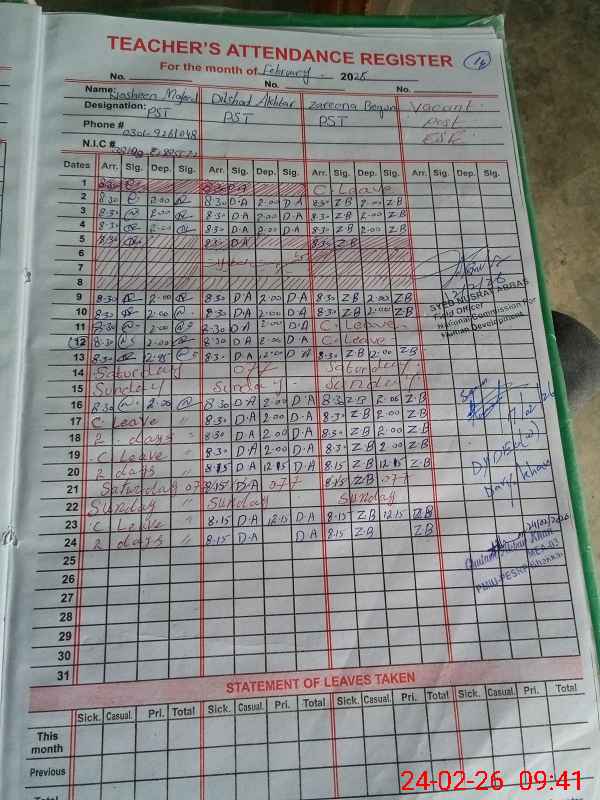 TEACHER'S ATTENDANCE REGISTER
14
For the month of February 2026
No. No. No.
Name: Dilshad Akhtar Zareena Begum Vacant
Designation: PST PST PST Post
Phone # ESE
N.I.C #
Dates Arr. Sig. Dep. Sig. Arr. Sig. Dep. Sig. Arr. Sig. Dep. Sig. Arr. Sig. Dep. Sig.
1 C Leave
2 8:30 2:00 8:30 D.A 2:00 D.A 8:30 Z.B 2:00 Z.B
3 8:30 2:00 8:30 D.A 2:00 D.A 8:30 Z.B 2:00 Z.B
4 8:30 2:00 8:30 D.A 2:00 D.A 8:30 Z.B 2:00 Z.B
5 8:30 8:30 D.A 8:30 Z.B
6
7
8
9 8:30 2:00 8:30 D.A 2:00 D.A 8:30 Z.B 2:00 Z.B
10 8:30 2:00 8:30 D.A 2:00 D.A 8:30 Z.B 2:00 Z.B
11 8:30 2:00 8:30 D.A 2:00 D.A C Leave
12 8:30 2:00 8:30 D.A 2:00 D.A C Leave
13 8:30 8:30 D.A 12:00 D.A 8:30 Z.B 2:00 Z.B
14 Saturday Saturday
15 Sunday Sunday Sunday
16 8:30 2:00 8:30 D.A 2:00 D.A 8:30 Z.B 2:00 Z.B
17 C Leave " 8:30 D.A 2:00 D.A 8:30 Z.B 2:00 Z.B
18 2 days " 8:30 D.A 2:00 D.A 8:30 Z.B 2:00 Z.B
19 C Leave " 8:30 D.A 2:00 D.A 8:30 Z.B 2:00 Z.B
20 2 days " 8:15 D.A 12:15 D.A 8:15 Z.B 12:15 Z.B
21 Saturday 8:15 D.A 8:15 Z.B
22 Sunday " Sunday Sunday
23 C Leave " 8:15 D.A 12:15 D.A 8:15 Z.B 12:15 Z.B
24 2 days " 8:15 D.A D.A 8:15 Z.B Z.B
25
26
27
28
29
30
31
SYED NUSRAT ABBAS
Field Officer
National Commission For
Human Development
17/02/26
24/02/2026
STATEMENT OF LEAVES TAKEN
Sick. Casual. Pri. Total Sick. Casual. Pri. Total Sick. Casual. Pri. Total Sick. Casual. Pri. Total
This month
Previous
Total
24-02-26 09:41